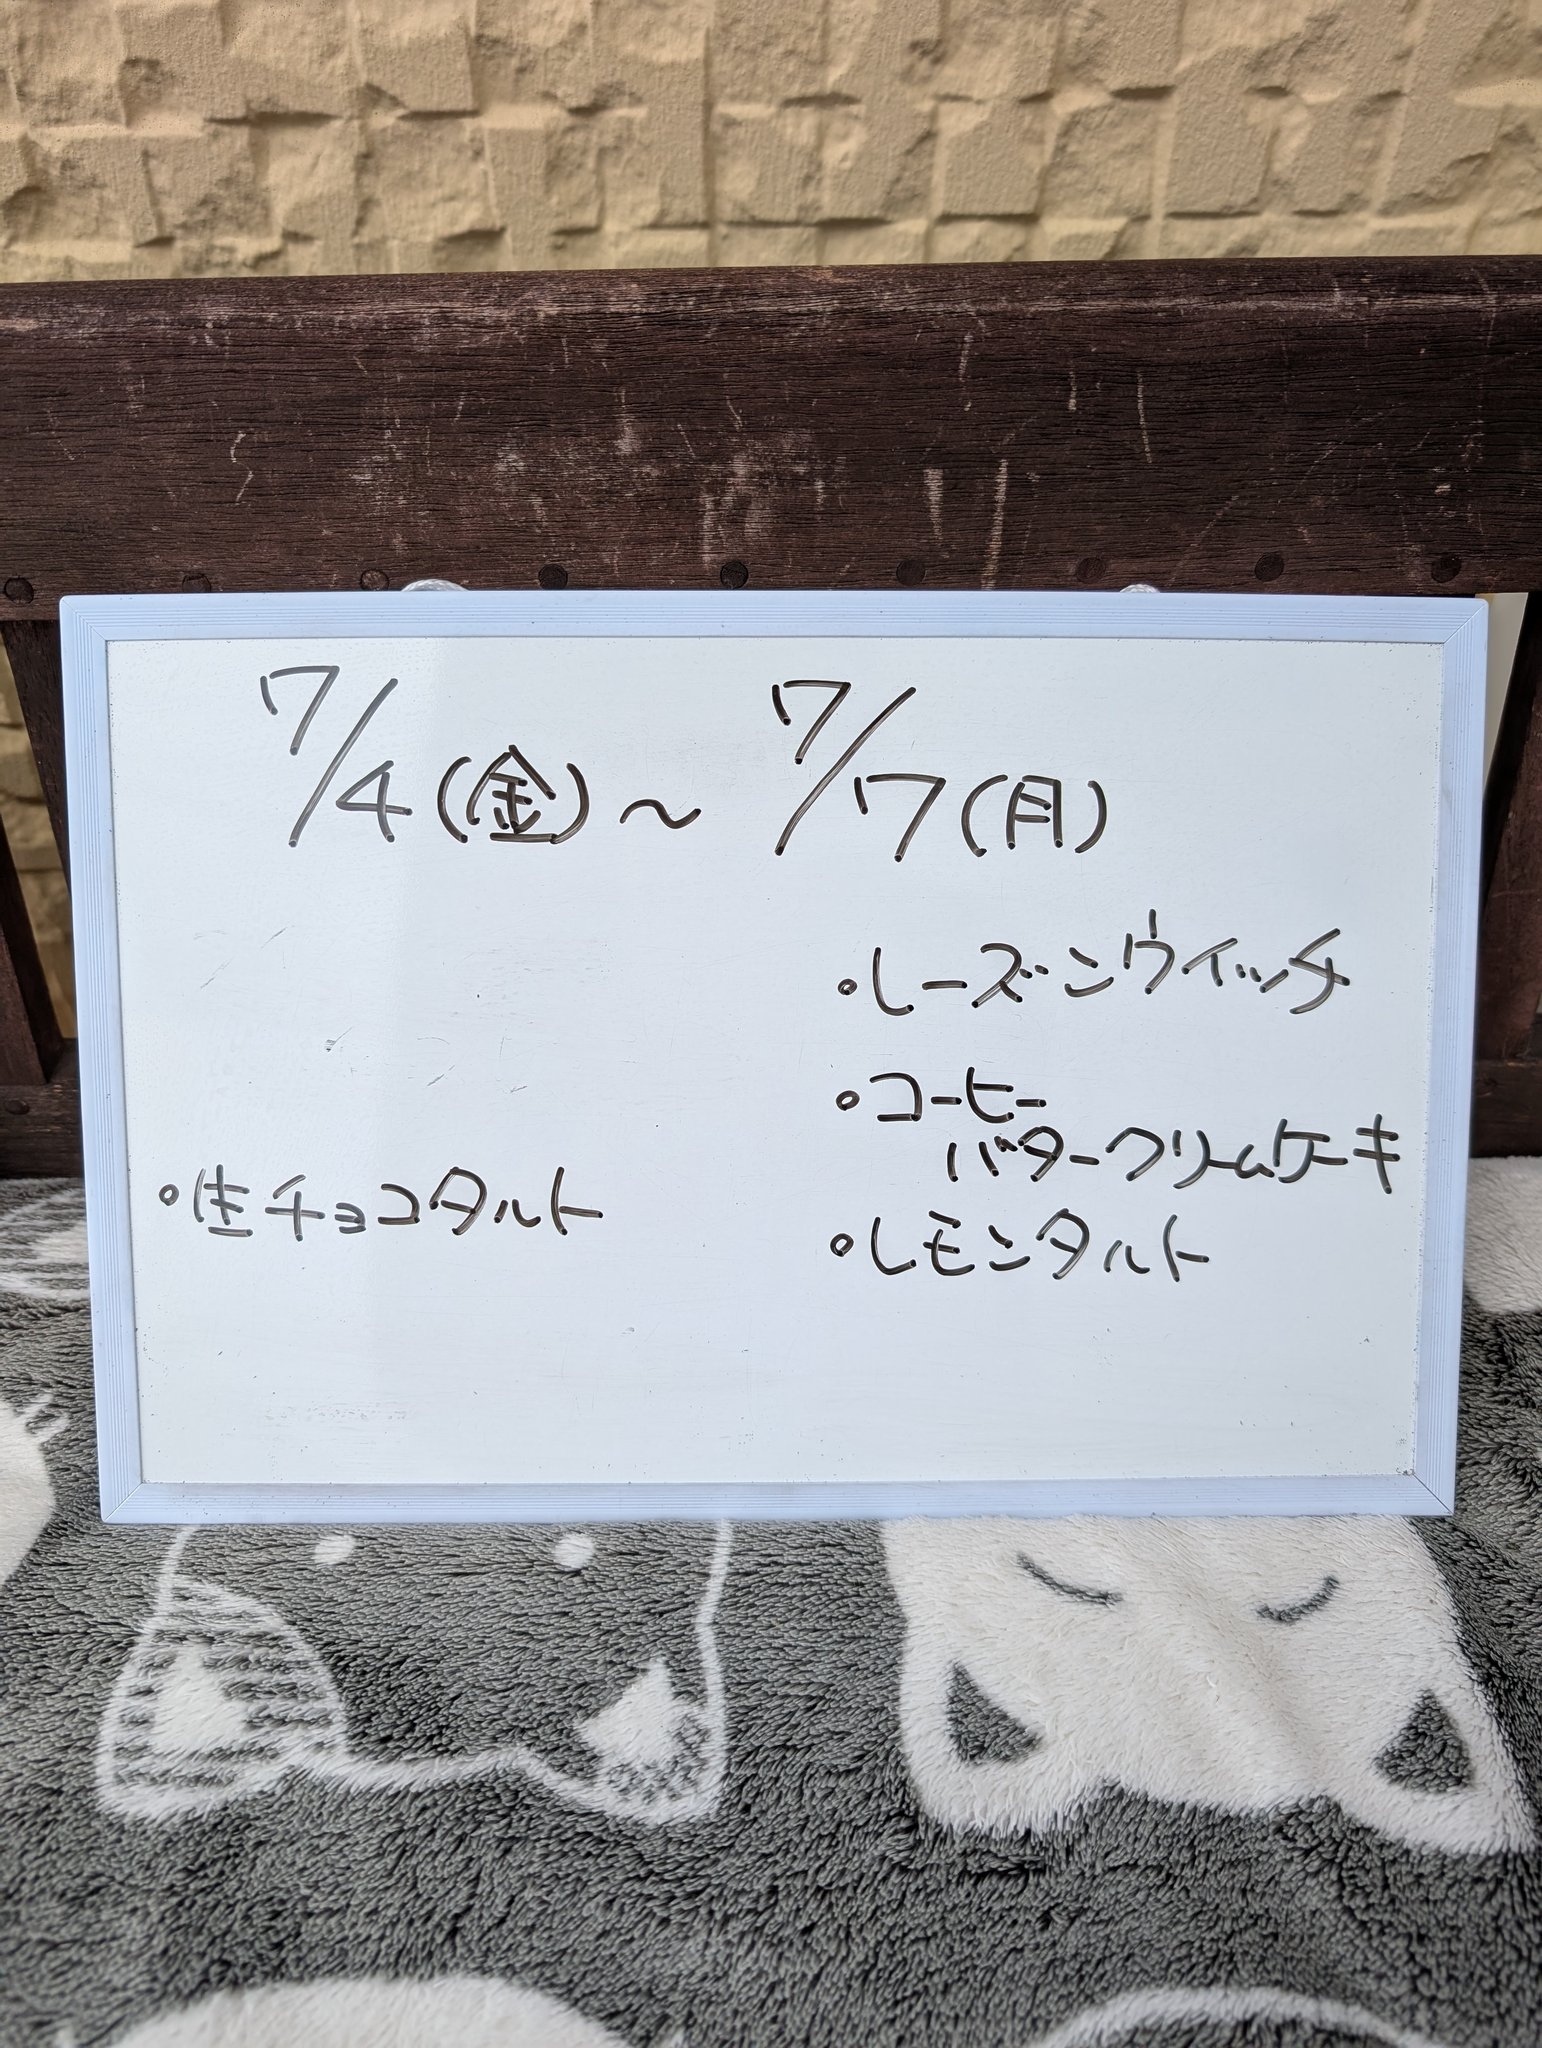 7/4(金)〜7/7(月)
・レーズンウィッチ
・コーヒー
バタークリームケーキ
・生チョコタルト
・レモンタルト